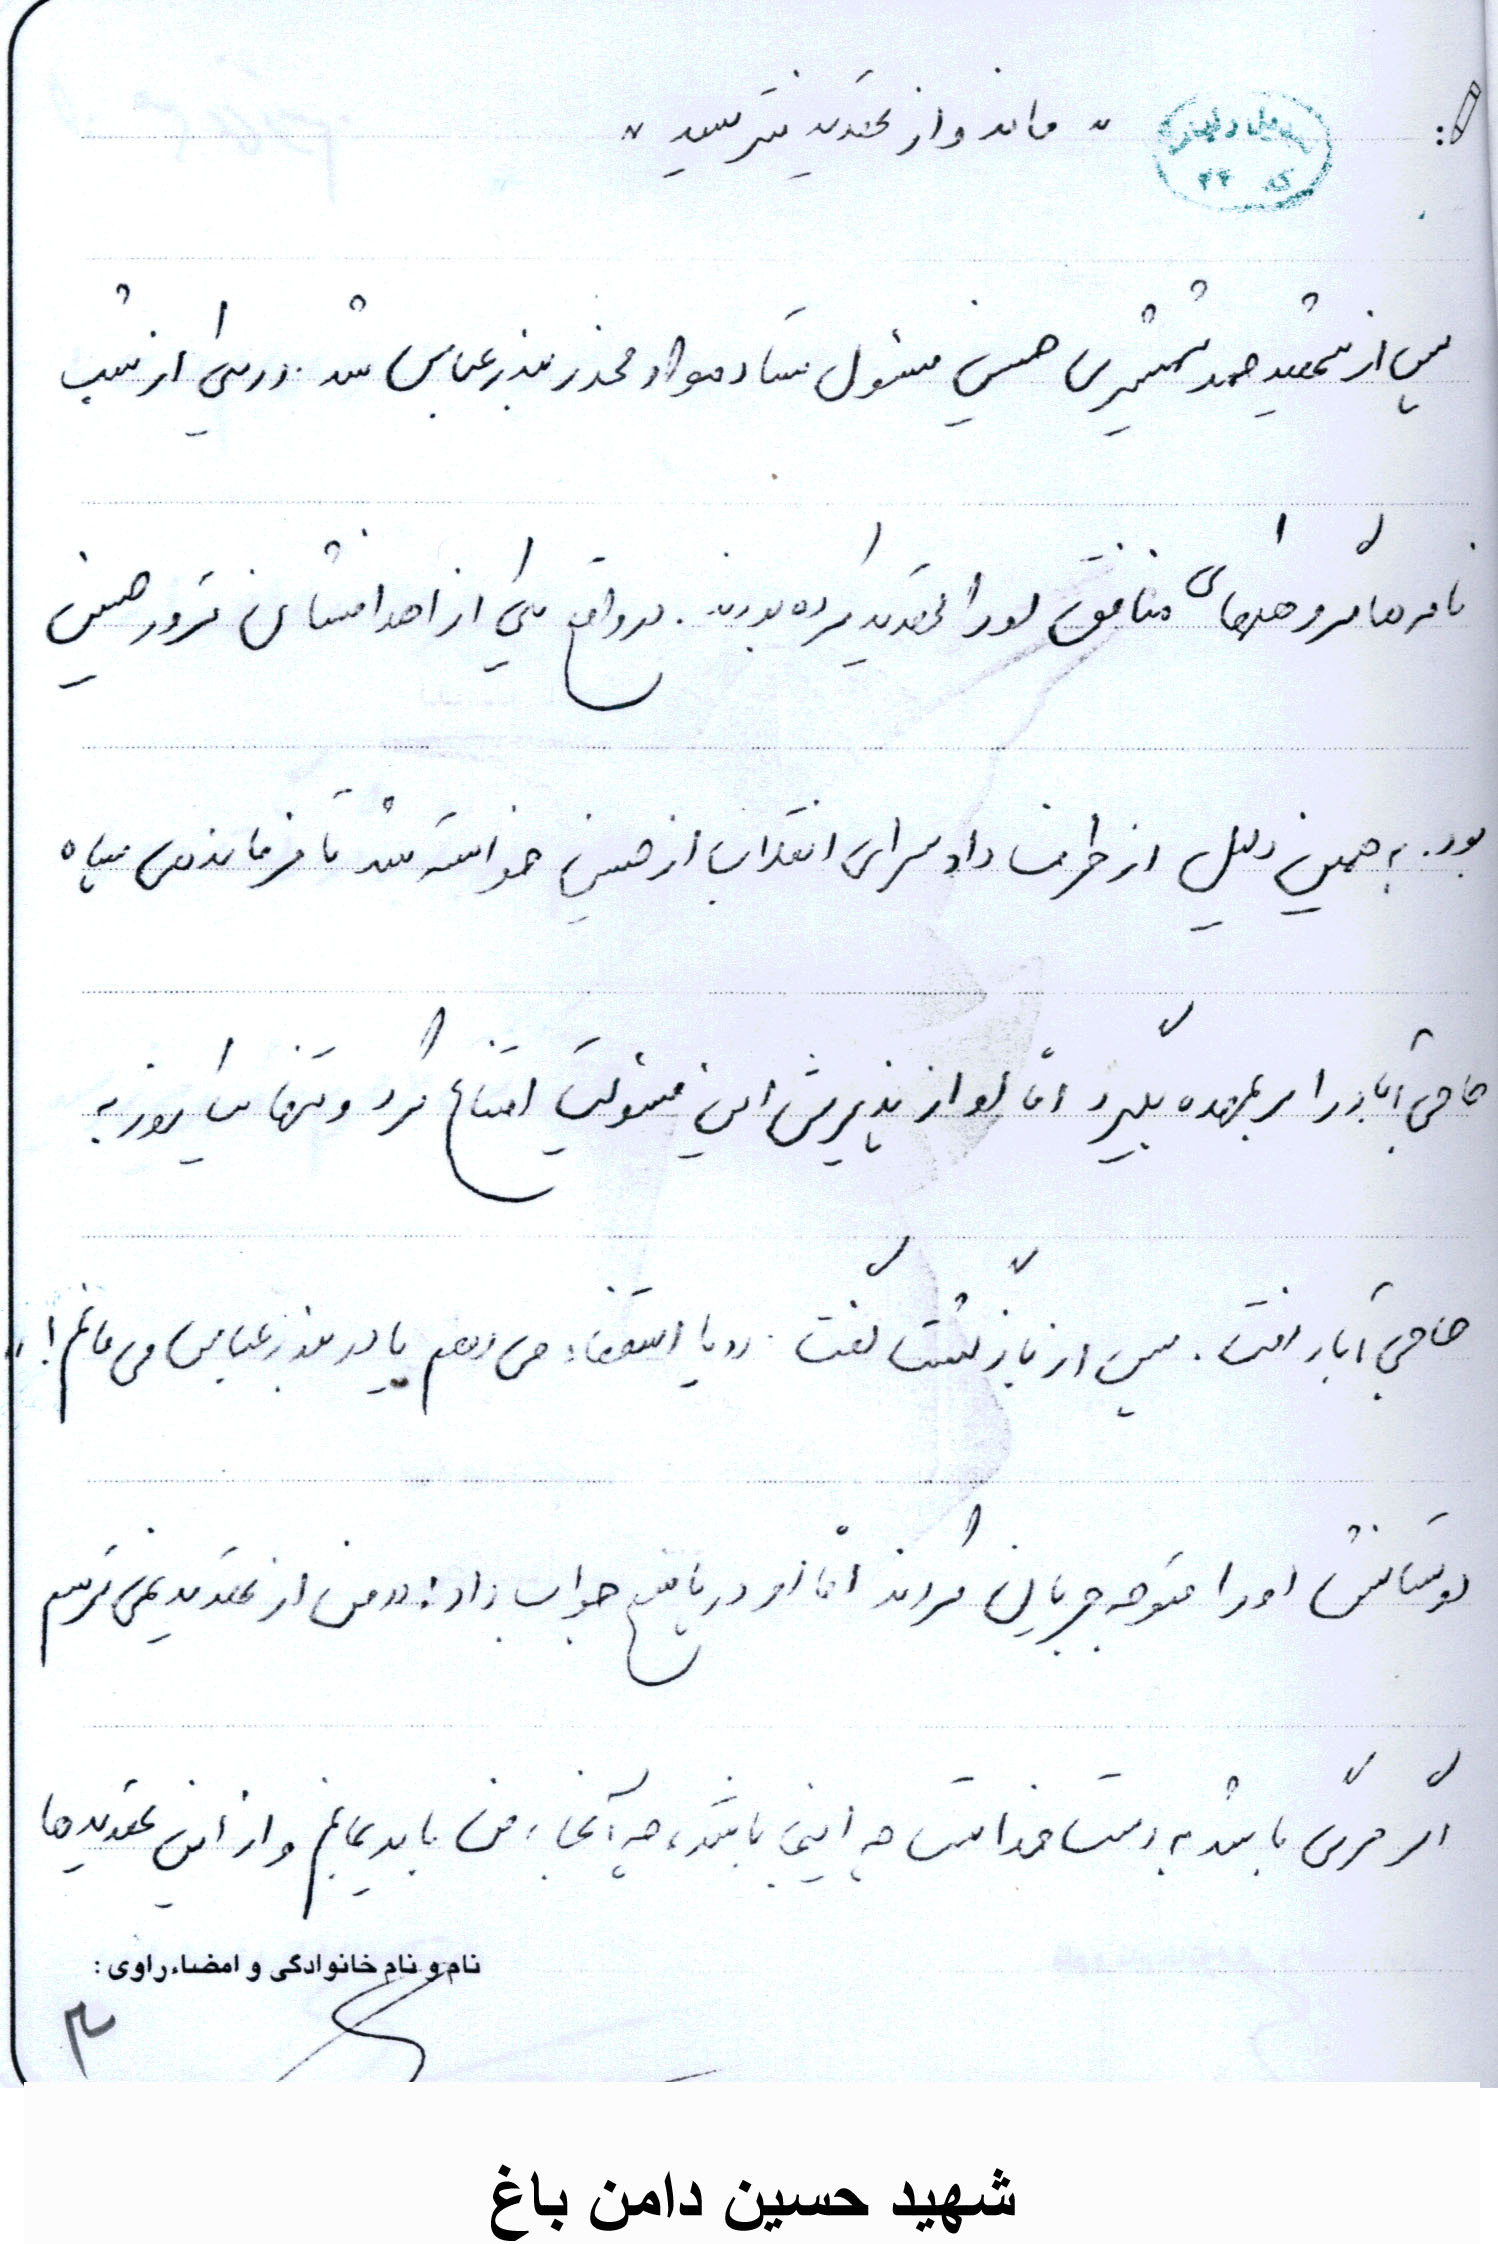 " ماند و از تهدید نترسید "
کد ۴۴
پس از شهید حمد شمشیری حسین مسئول ستاد مواد مخدر بندرعباس شد. در یکی از شب
نامه‌ها گروهکهای منافق او را تهدید کرده بودند. در واقع یکی از اهدافشان ترور حسین
بود. به همین دلیل از طرف دادسرای انقلاب از حسین خواسته شد تا فرماندهی سپاه
حاجی‌آباد را بر عهده بگیرد اما او از پذیرش این مسئولیت امتناع کرد و تنها یک روز به
حاجی آباد رفت. پس از بازگشت گفت: «یا استعفاء می‌دهم یا در بندرعباس می‌مانم!»
دوستانش او را متوجه جریان کردند اما او در پاسخ جواب داد: «من از تهدید نمی‌ترسم
اگر مرگی باشد به دست خداست چه اینجا باشد، چه آنجا، من باید بمانم و از این تهدیدها
نام و نام خانوادگی و امضاء راوی :
شهید حسین دامن باغ